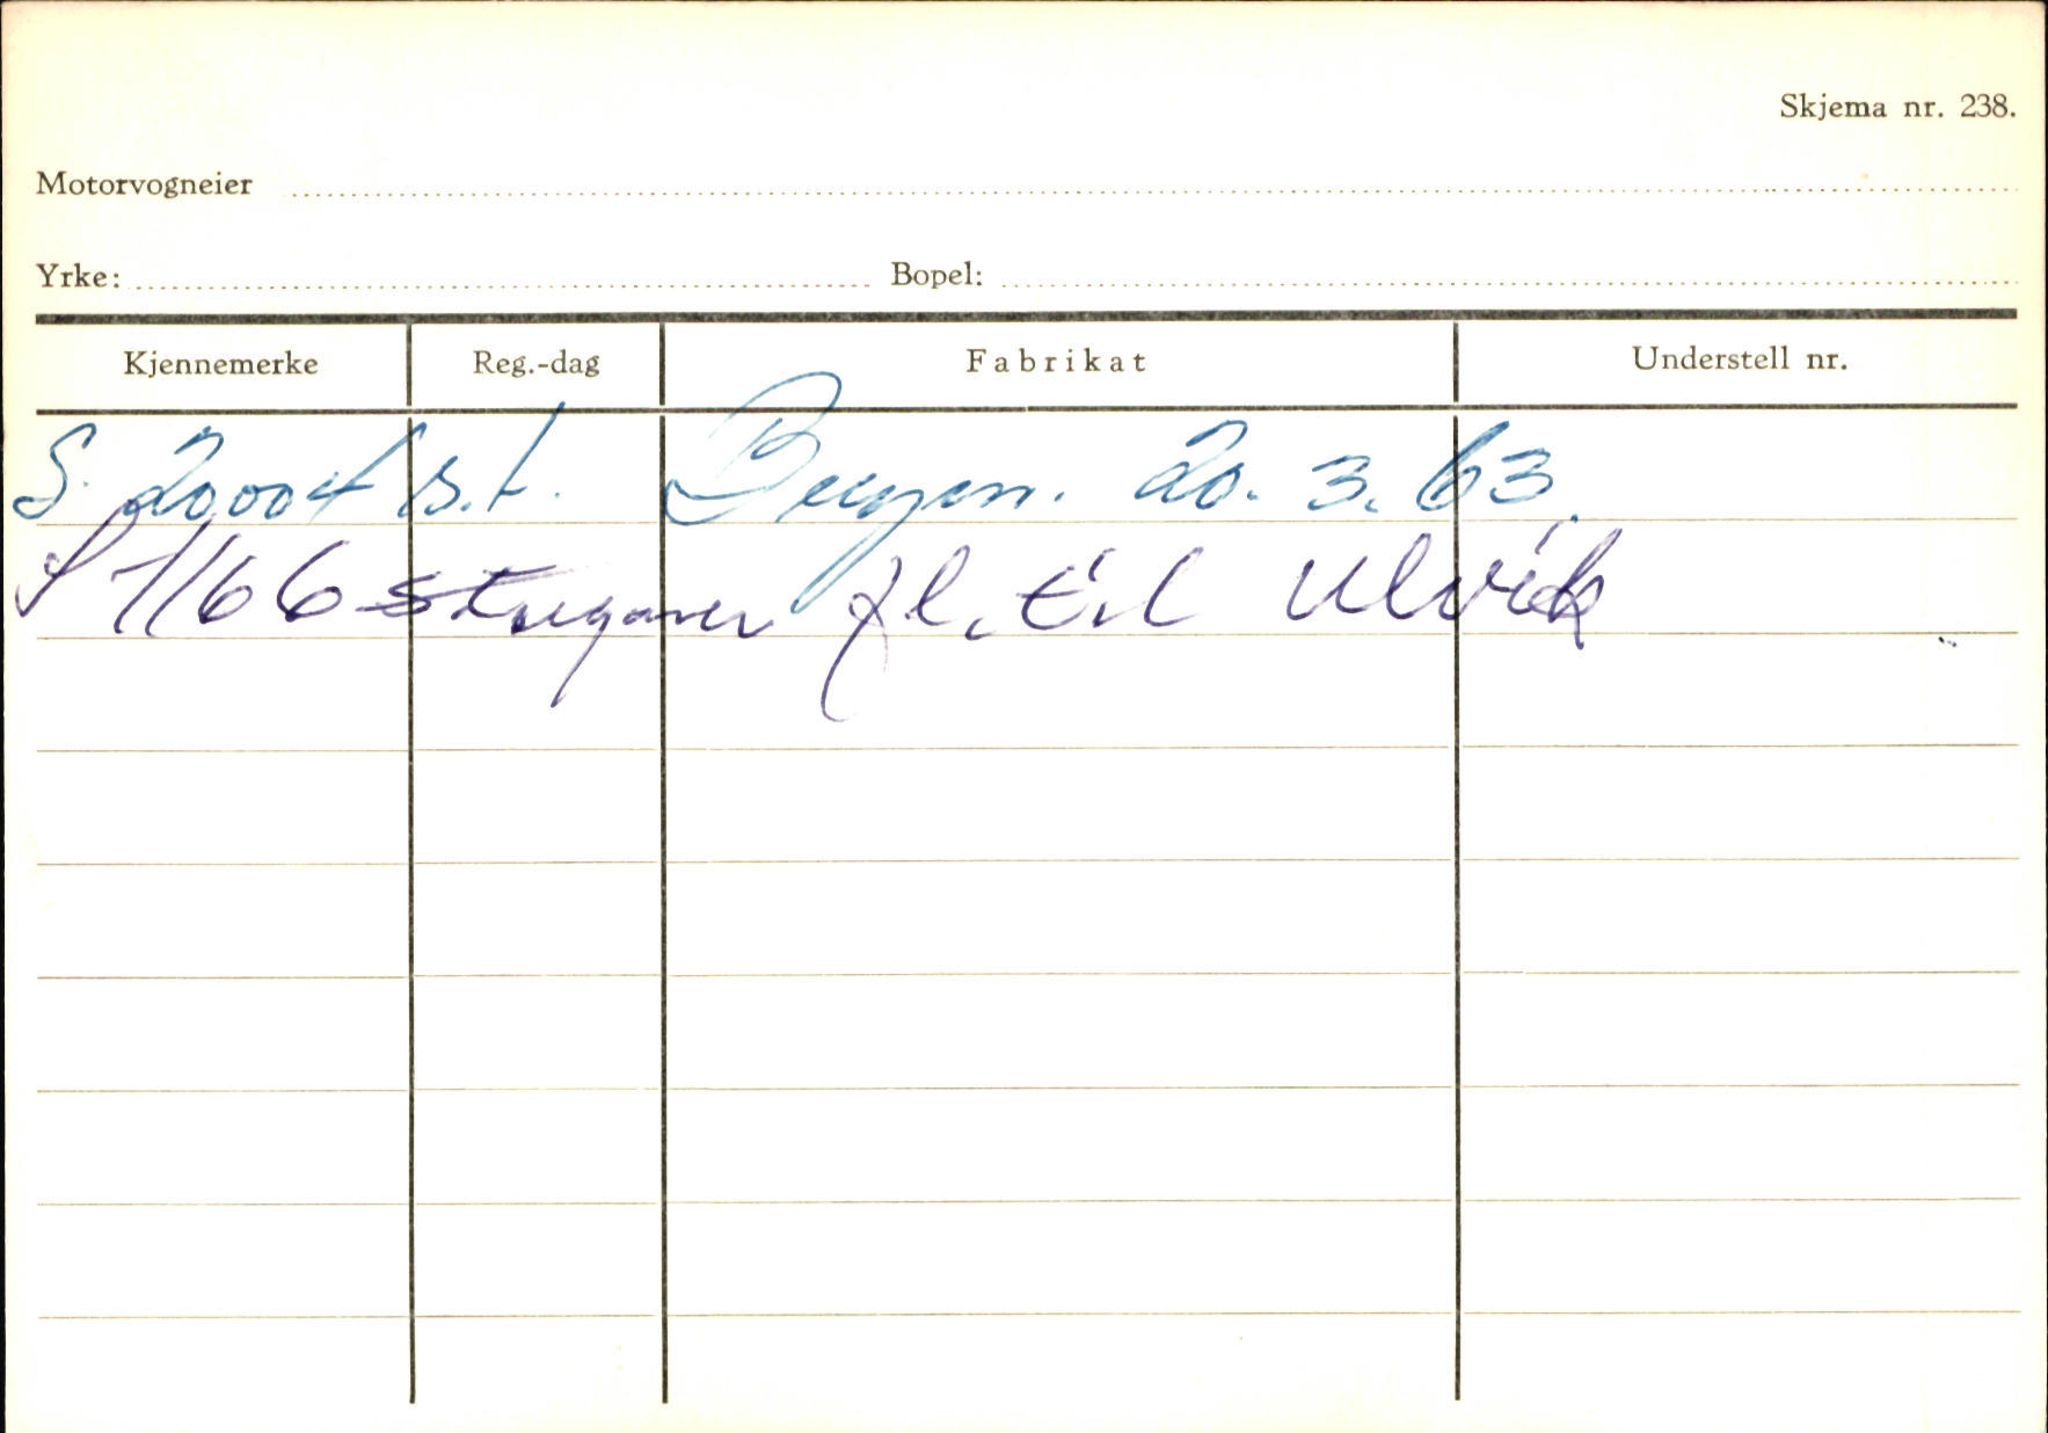 Skjema nr. 238.
Motorvogneier
Yrke: Bopel:
Kjennemerke Reg.-dag Fabrikat Understell nr.
S. 20004 s.t. Bergen. 20. 3. 63.
S 7166 fl. til Ulvik